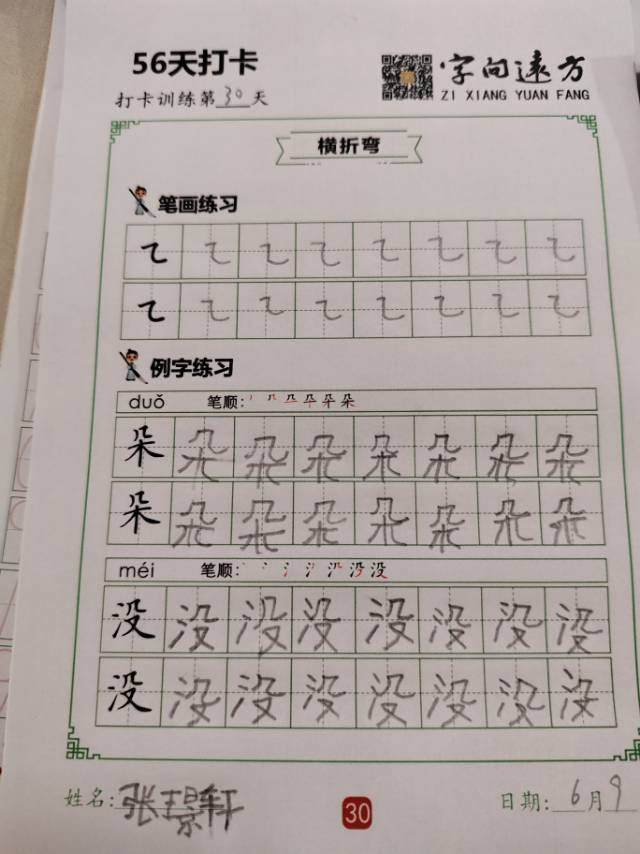 56天打卡
打卡训练第30天
字向遠方
ZI XIANG YUAN FANG
横折弯
笔画练习
例字练习
duǒ 笔顺:
朵 朵 朵 朵 朵 朵 朵 朵
朵 朵 朵 朵 朵 朵 朵 朵
méi 笔顺:
没 没 没 没 没 没 没 没
没 没 没 没 没 没 没 没
姓名:张璟轩
30
日期: 6月9